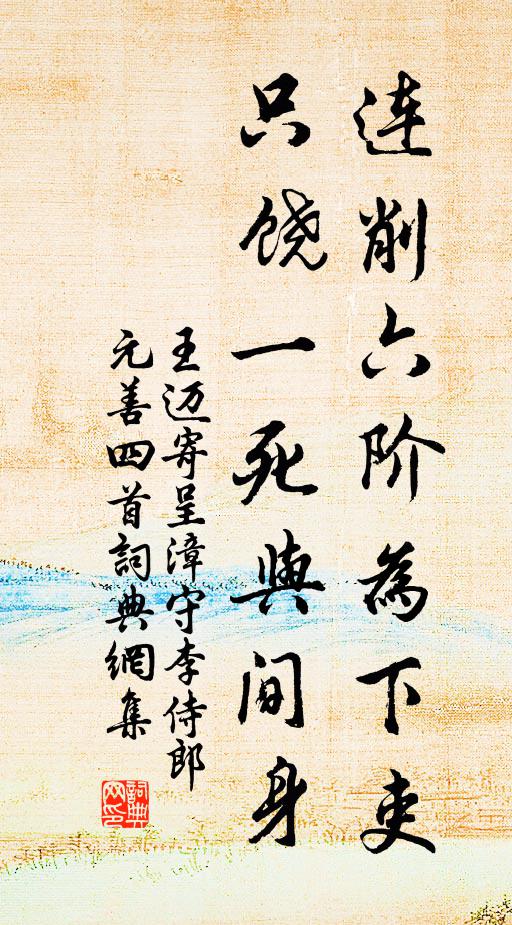 连削六阶為下吏
只饶一死與间身
王迈寄呈漳守李侍郎
元善四首詞典網集
詞典
网印